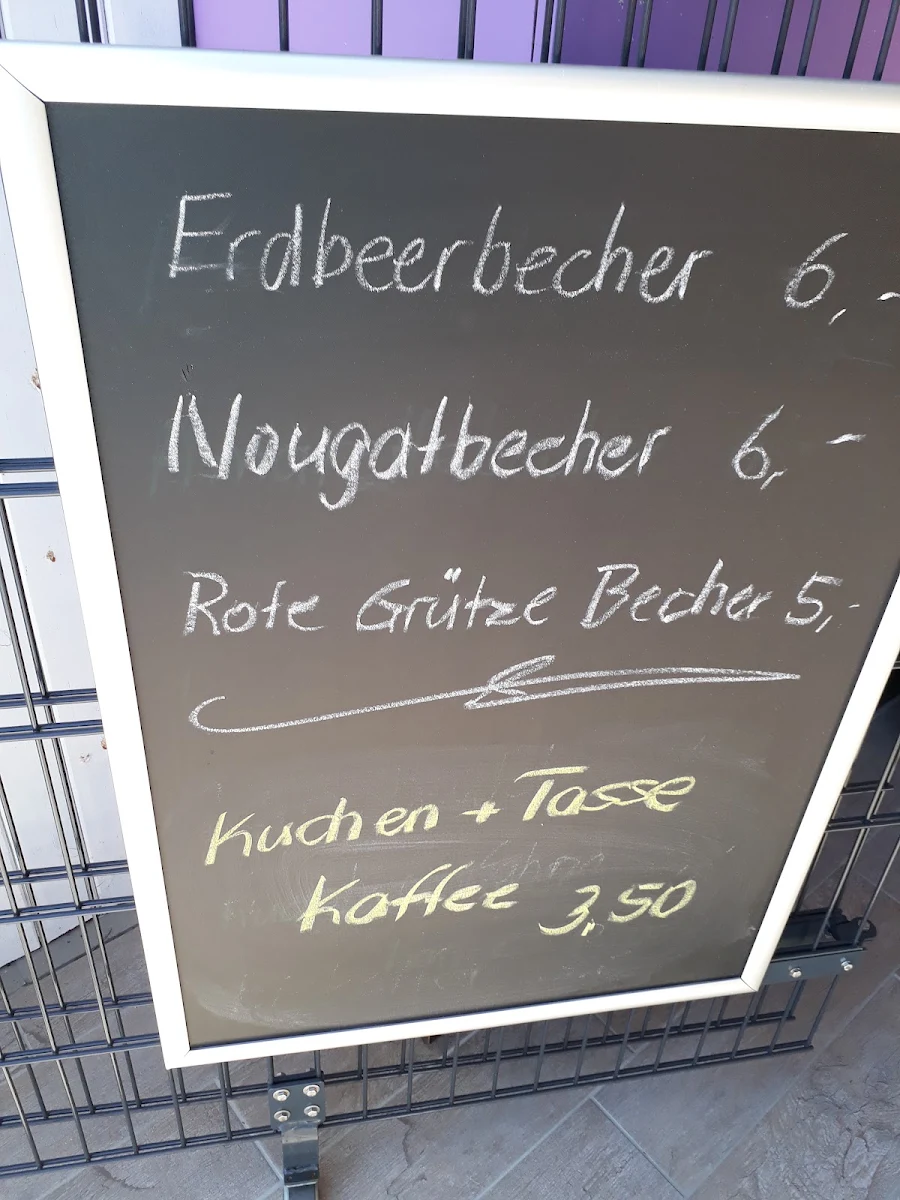 Erdbeerbecher 6,-
Nougatbecher 6,-
Rote Grütze Becher 5,-
Kuchen + Tasse
Kaffee 3,50